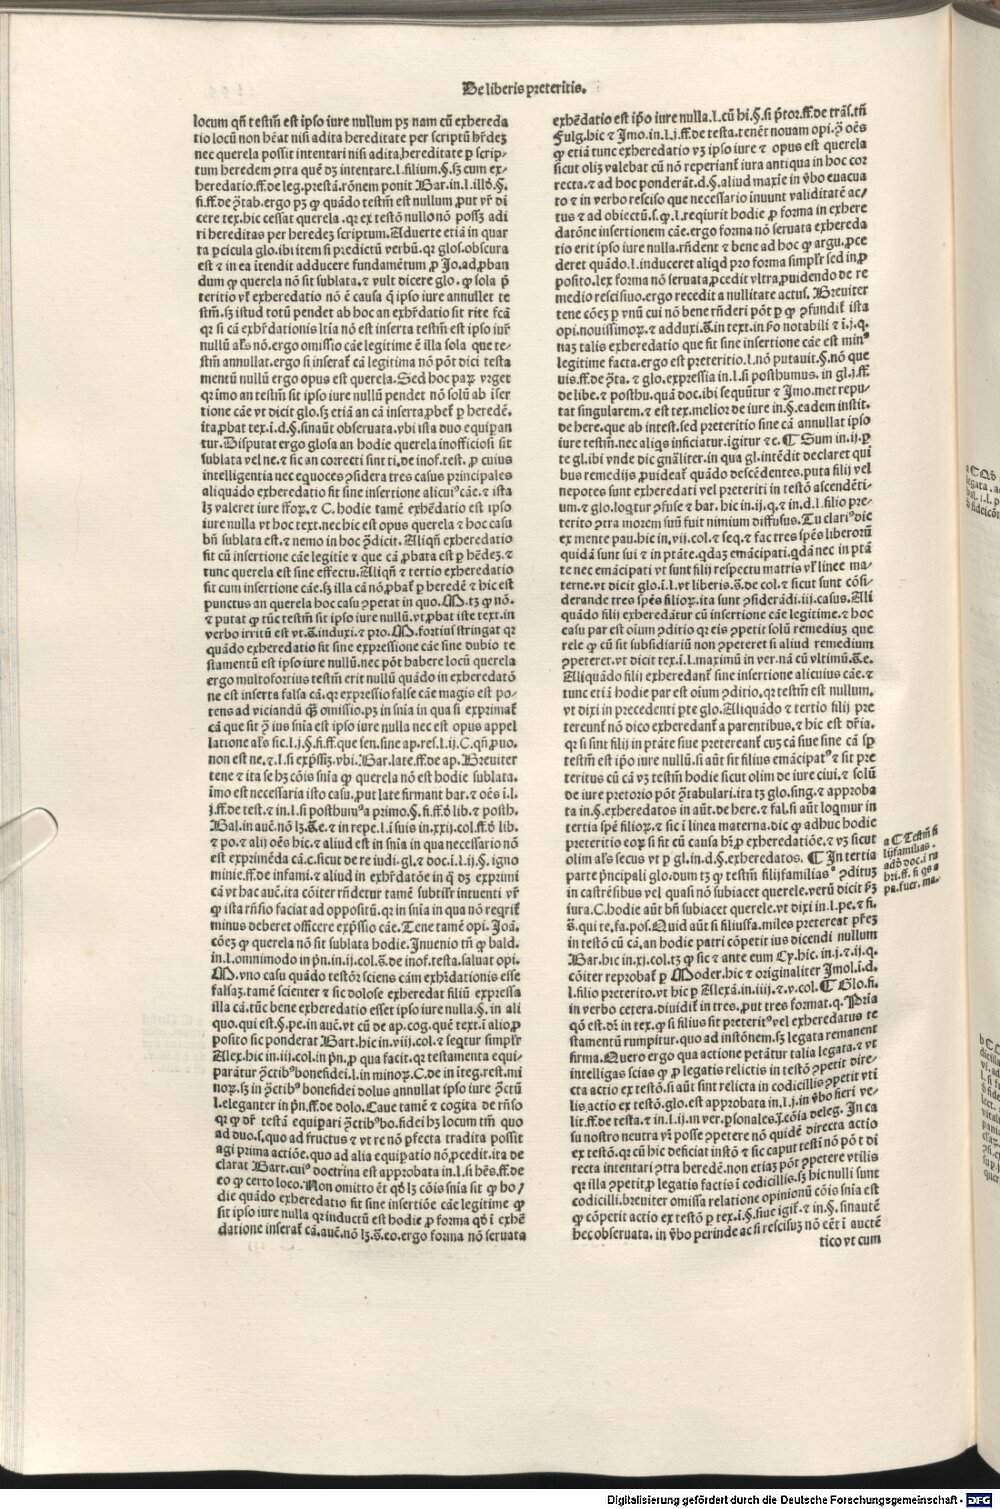 De liberis preteritis.
locum qñ testm̄ est ipso iure nullum pꝫ nam cū exhereda
tio locū non hēat nisi adita hereditate per scriptū hr̄deꝫ
nec querela possit intentari nisi adita hereditate ꝑ scrip-
tum heredem ꝯtra quē dꝫ intentare.l.filium.§.sꝫ cum ex-
heredatio.ff.de leg.prestā.rōnem ponit Bar.in.l.illō.§.
fi.ff.de ꝯtab.ergo pꝫ ꝙ quādo testm̄ est nullum ꝓut vr̄ di
cere tex.hic cessat querela.qꝛ ex testō nullo nō possꝫ adi
ri hereditas per heredeꝫ scriptum.Aduerte etiā in quar
ta ꝑticula glo.ibi item si predictū verbū.qꝛ glos.obscura
est ⁊ in ea ītendit adducere fundamētum ꝓ Jo.ad ꝓban
dum ꝙ querela nō sit sublata.⁊ vult dicere glo.ꝙ sola ꝑ
teritio vł exheredatio nō ē causa ꝙ ipso iure annullet te
stm̄.sꝫ istud totū pendet ab hoc an exhr̄datio sit rite fcā
qꝛ si cā exhr̄dationis ltīa nō est inserta testm̄ est ipso iur̄
nullū ał̄s nō.ergo omissio cāe legitime ē illa sola que te-
stm̄ annullat.ergo si inserať cā legitima nō pōt dici testa
mentū nullū ergo opus est querela.Sed hoc paꝝ vrget
qꝛ imo an testm̄ sit ipso iure nullū pendet nō solū ab īser
tione cāe vt dicit glo.sꝫ etiā an cā inserta ꝓbeť ꝑ heredē.
ita ꝓbat tex.i.d.§.sinaūt obseruata.vbi ista duo equiparan
tur.Disputat ergo glosa an hodie querela inofficiosi sit
sublata vel ne.⁊ sic an correcti sint ti.de inof.test.ꝓ cuius
intelligentia nec equoces ꝯsidera tres casus principales
aliquādo exheredatio fit sine insertione alicuiꝰ cāe.⁊ ista
lꝫ valeret iure ffoꝝ.⁊ C.hodie tamē exhēdatio est ipso
iure nulla vt hoc text.nec hic est opus querela ⁊ hoc casu
bñ sublata est.⁊ nemo in hoc ꝯdicit.Aliqñ exheredatio
fit cū insertione cāe legitie ⁊ que cā ꝓbata est ꝑ hēdeꝫ.⁊
tunc querela est sine effectu.Aliqñ ⁊ tertio exheredatio
fit cum insertione cāe.sꝫ illa cā nō ꝓbať ꝑ heredē ⁊ hic est
punctus an querela hoc casu ꝯpetat in quo.M.tꝫ ꝙ nō.
⁊ putat ꝙ tūc testm̄ sit ipso iure nullū.vt ꝓbat iste text.in
verbo irritū est vt.s̄.induxi.⁊ pro.M.fortius stringat qꝛ
quādo exheredatio fit sine expressione cāe sine dubio te
stamentū est ipso iure nullū.nec pōt habere locū querela
ergo multofortius testm̄ erit nullū quādo in exheredatō
ne est inserta falsa cā.qꝛ expressio false cāe magis est po-
tens ad viciandū ꝙ̄ omissio.pꝫ in snīa in qua si exprimať
cā que sit ꝯ̄ ius snīa est ipso iure nulla nec est opus appel
latione ał̄s sic.l.j.§.fi.ff.que sen.sine ap.res.l.ij.C.qñ ꝓuo.
non est ne.⁊.l.si exp̄ssiꝫ.vbi.Bar.late.ff.de ap.Breuiter
tene ⁊ ita se hꝫ cōis snīa ꝙ querela nō est hodie sublata.
īmo est necessaria isto casu.ꝓut late firmant bar.⁊ oēs i.l.
j.ff.de test.⁊ in.l.si posthumꝰ a primo.§.fi.ff.ō lib.⁊ posth.
Bal.in auē.nō lꝫ.s̄.e.⁊ in repe.l.i suis in.xxij.col.ff.ō lib.
⁊ po.⁊ alij oēs hic.⁊ aliud est in snīa in qua necessario nō
est exprimēda cā.c.sicut de re iudi.gl.⁊ doc.i.l.ij.§.igno
minie.ff.de infami.⁊ aliud in exhr̄datōe in ꝙ̄ dꝫ exprimi
cā vt hac auē.ita cōiter rñdetur tamē subtiłr intuenti vr̄
ꝙ ista rñsio faciat ad oppositū.qꝛ in snīa in qua nō reqriť
minus deberet officere exp̄ssio cāe.Tene tamē opi.Joā.
cōeꝫ ꝙ querela nō sit sublata hodie.Inuenio tñ ꝙ bald.
in.l.omnimodo in pñ.in.ij.col.s̄.de inof.testa.saluat opi.
M.vno casu quādo testōr sciens cām exhr̄dationis esse
falsaꝫ.tamē scienter ⁊ sic dolose exheredat filiū expressa
illa cā.tūc bene exheredatio esset ipso iure nulla.§.in ali
quo.qui est.§.pe.in auē.vt cū de ap.cog.quē text.ī alio ꝓ
posito sic ponderat Bart.hic in.viij.col.⁊ seqtur simpłr
Alex.hic in.iij.col.in pñ.ꝓ qua facit.qꝛ testamenta equi-
parātur ꝯctibꝰ bonefidei.l.in minoꝝ.C.de in īteg.rest.mi
noꝝ.sꝫ in ꝯctibꝰ bonefidei dolus annullat ipso iure ꝯctū
l.eleganter in pñ.ff.de dolo.Caue tamē ⁊ cogita de rñso
qꝛ ꝙ dr̄ testā equipari ꝯctibꝰ bo.fidei hꝫ locum tm̄ quo
ad duo.s.quo ad fructus ⁊ vt re nō ꝑfecta tradita possit
agi prima actiōe.quo ad alia equipatio nō ꝓcedit.ita de
clarat Bart.cuiꝰ doctrina est approbata in.l.si hēs.ff.de
eo ꝙ certo loco.Non omitto ēt qd̄ lꝫ cōis snīa sit ꝙ ho/
die quādo exheredatio fit sine insertiōe cāe legitime ꝙ
sit ipso iure nulla qꝛ inductū est hodie ꝓ forma qd̄ ī exhē
datione inserať cā.auē.nō lꝫ.s̄.eo.ergo forma nō seruata
exhēdatio est ip̄o iure nulla.l.cū hi.§.si p̄tor.ff.de trās.tñ
Fulg.hic ⁊ Imo.in.l.j.ff.de testa.tenēt nouam opi.ꝯ̄ oēs
ꝙ etiā tunc exheredatio vꝫ ipso iure ⁊ opus est querela
sicut oliꝫ valebat cū nō reperianť iura antiqua in hoc cor
recta.⁊ ad hoc ponderāt.d.§.aliud maxie in v̄bo euacua
to ⁊ in verbo resciso que necessario inuunt validitatē ac/
tus ⁊ ad obiectū.s.ꝙ.l.reqiurit hodie ꝓ forma in exhere
datōne insertionem cāe.ergo forma nō seruata exhereda
tio erit ipso iure nulla.rñdent ⁊ bene ad hoc ꝙ argu.ꝓce
deret quādo.l.induceret aliqd pro forma simpłr sed in ꝓ
posito.lex forma nō seruata ꝓcedit vltra ꝓuidendo de re
medio rescisiuo.ergo recedit a nullitate actus.Breuiter
tene cōeꝫ ꝑ vnū cui nō bene rñderi pōt ꝑ ꝙ ꝯfundiť ista
opi.nouissimoꝝ.⁊ adduxi.s̄.in text.in ṗo notabili ⁊ ī.j.q.
naꝫ talis exheredatio que fit sine insertione cāe est minꝰ
legitime facta.ergo est preteritio.l.nō putauit.§.nō que
uis.ff.de ꝯta.⁊ glo.expressia in.l.si posthumus.in gl.j.ff.
de libe.⁊ posthu.quā doc.ibi sequūtur ⁊ Imo.met repu/
tat singularem.⁊ est tex.melior de iure in.§.eadem instit.
de here.que ab intest.sed preteritio sine cā annullat ipso
iure testm̄.nec aliqs inficiatur.igitur ⁊c.¶ Sum in.ij.ꝑ
te gl.ibi vnde dic gñaliter.in qua gl.intēdit declaret qui
bus remedijs ꝓuideať quādo descēdentes.puta filij vel
nepotes sunt exheredati vel preteriti in testō ascendēti-
um.⁊ glo.loqtur ꝯfuse ⁊ bar.hic in.ij.q.⁊ in.d.l.filio pre-
terito ꝯtra morem suū fuit nimium diffusus.Tu clariꝰ dic
ex mente pau.hic in.vij.col.⁊ seq.⁊ fac tres sp̄es liberorū
quidā sunt sui ⁊ in ptāte.qdaꝫ emācipati.qdā nec in ptā
te nec emācipati vt sunt filij respectu matris vł linee ma-
terne.vt dicit glo.i.l.vt liberis.s̄.de col.⁊ sicut sunt cōsi-
derande tres sp̄es filioꝝ.ita sunt ꝯsiderādi.iij.casus.Ali
quādo filij exheredātur cū insertione cāe legitime.⁊ hoc
casu par est oīum ꝯditio qꝛ eis ꝯpetit solū remediuꝫ que
rele ꝙ cū sit subsidiariū non ꝯpeteret si aliud remedium
ꝯpeteret.vt dicit tex.i.l.maximū in ver.nā cū vltimū.s̄.e.
Aliquādo filij exheredanť sine insertione alicuius cāe.⁊
tunc etiā hodie par est oīum ꝯditio.qꝛ testm̄ est nullum.
vt dixi in precedenti ꝑte glo.Aliquādo ⁊ tertio filij pre
tereunť nō dico exheredanť a parentibus.⁊ hic est dr̄ia.
qꝛ si sint filij in ptāte siue pretereanť cuꝫ cā siue sine cā sꝑ
testm̄ est ip̄o iure nullū.si aūt sit filius emācipatꝰ ⁊ sit pre
teritus cū cā vꝫ testm̄ hodie sicut olim de iure ciui.⁊ solū
de iure pretorio pōt ꝯtabulari.ita tꝫ glo.sing.⁊ approba
ta in.§.exheredatos in aūt.de here.⁊ fal.si aūt loqmur in
tertia sp̄e filioꝝ.⁊ sic ī linea materna.dic ꝙ adhuc hodie
preteritio eoꝝ si fit cū causa hꝫ ꝓ exheredatiōe.⁊ vꝫ sicut
olim ał̄s secus vt ꝑ gl.in.d.§.exheredatos. ¶ In tertia
parte p̄ncipali glo.dum tꝫ ꝙ testm̄ filijfamiliasꝰ ꝯditus
in castrēsibus vel quasi nō subiacet querele.verū dicit ẜꝫ
iura.C.hodie aūt bñ subiacet querele.vt dixi in.l.pe.⁊ fi.
s̄.qui te.fa.pos.Quid aūt si filiusfa.miles pretereat pr̄eꝫ
in testō cū cā.an hodie patri cōpetit ius dicendi nullum
Bar.hic in.xj.col.tꝫ ꝙ sic ⁊ ante eum Cy.hic.in.j.⁊.ij.q.
cōiter reprobať ꝑ Moder.hic ⁊ originaliter Imol.i.d.
l.filio preterito.vt hic ꝑ Alexā.in.iiij.⁊.v.col.¶ Glo.fi.
in verbo cetera.diuidiť in tres.ꝓut tres format.q.Prīa
qō est.dn̄ in tex.ꝙ si filius sit preteritꝰ vel exheredatus te
stamentū rumpitur.quo ad instōnem.sꝫ legata remanent
firma.Quero ergo qua actione petātur talia legata.⁊ vt
intelligas scias ꝙ ꝓ legatis relictis in testō ꝯpetit dire-
cta actio ex testō.si aūt sint relicta in codicillis ꝯpetit vti
lis actio ex testō.glo.est approbata in.l.j.in v̄bo fieri ve-
lit.ff.de testa.⁊ in.l.ij.in ver.ꝑsonales.j.cōia deleg. In ca
su nostro neutra vr̄ posse ꝯpetere nō quidē directa actio
ex testō.qꝛ cū hic deficiat instō ⁊ sic caput testi nō pōt di
recta intentari ꝯtra heredē.non etiaꝫ pōt ꝯpetere vtilis
qꝛ illa ꝯpetit ꝓ legatis factis ī codicillis.sꝫ hic nulli sunt
codicilli.breuiter omissa relatione opinionū cōis snīa est
ꝙ cōpetit actio ex testō ꝑ tex.i.§.siue igiť.⁊ in.§.sinautē
hec obseruata.in v̄bo perinde ac si rescisuꝫ nō eēt ī auctē
tico vt cum
a ¶ Testm̄ fi
lijfamilias.
adō doc.i ru
bri.ff.si qs a
pa.fuer.ma.
Digitalisierung gefördert durch die Deutsche Forschungsgemeinschaft - DFG